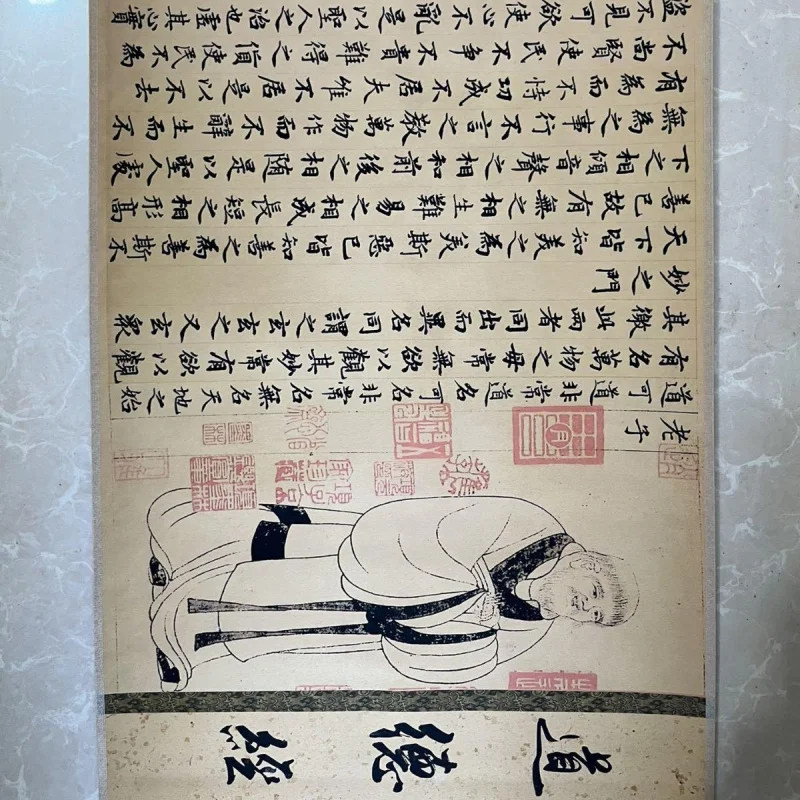 道德經
老子
道可道非常道名可名非常名無名天地之始
有名萬物之母常無欲以觀其妙常有欲以觀
其徼此兩者同出而異名同謂之玄玄之又玄眾
妙之門
天下皆知美之為美斯惡已皆知善之為善斯不
善已故有無之相生難易之相成長短之相形高
下之相傾音聲之相和前後之相随是以聖人處
無為之事行不言之教萬物作而不辭生而不
有為而不恃功成不居夫惟不居是以不去
不尚賢使民不爭不貴難得之貨使民不為
盜不見可欲使心不亂是以聖人之治也虛其心實